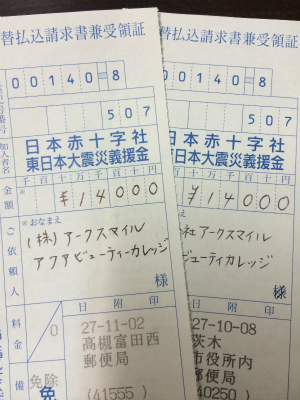 替払込請求書兼受領証
00140-8
507
加入者名
日本赤十字社
東日本大震災義援金
金額
千百十万千百十円
※
¥14000
ご依頼人
※おなまえ
(株)アークスマイル
アクアビューティーカレッジ
様
料金
0
日附印
27-11-02
高槻富田西
郵便局
(41555)
備
免除
替払込請求書兼受領証
00140-8
507
日本赤十字社
東日本大震災義援金
千百十万千百十円
¥14000
おなまえ
社アークスマイル
ビューティカレッジ
様
日附印
27-10-08
茨木
市役所内
郵便局
40250)